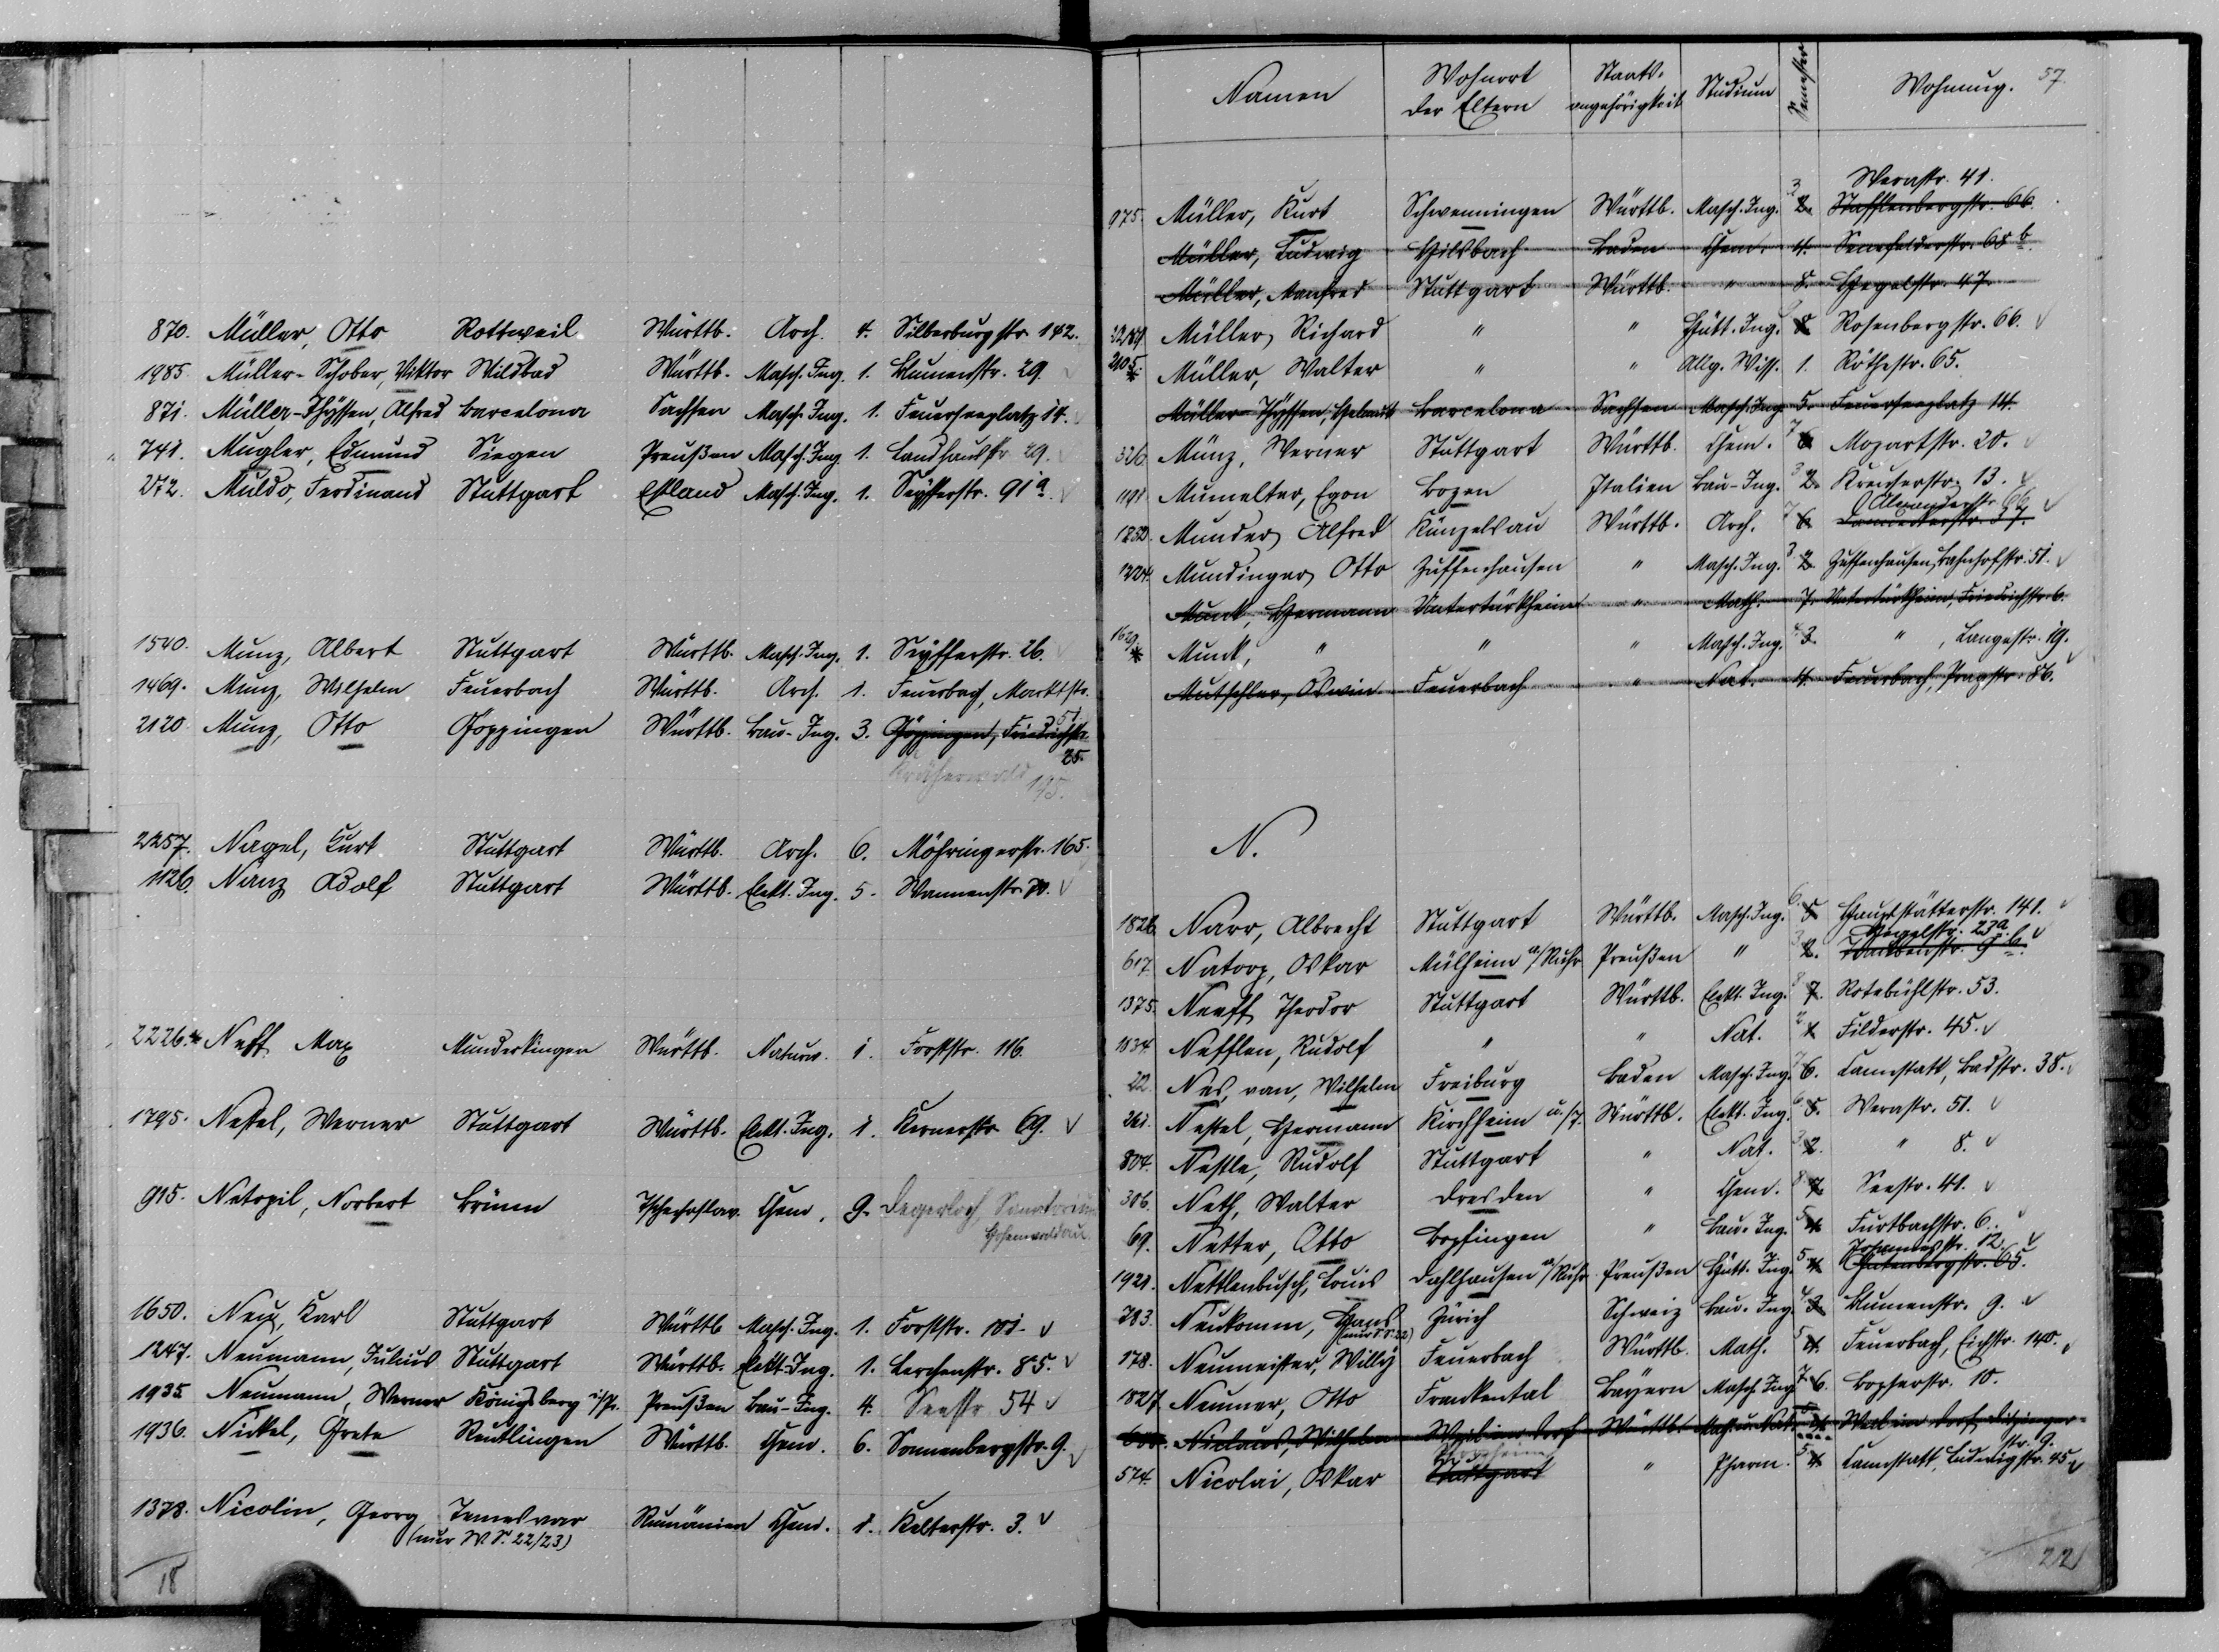 870. Müller, Otto Rottweil Württb. Arch. 4. Silberburgstr. 142.
1985. Müller-Schober, Viktor Wildbad Württb. Masch. Ing. 1. Blumenstr. 29.
871. Müller-Thyssen, Alfred Barcelona Sachsen Masch. Ing. 1. Feuerseeplatz 14.
741. Mugler, Edmund Siegen Preußen Masch. Ing. 1. Landhausstr. 29.
272. Muldo, Ferdinand Stuttgart Estland Masch. Ing. 1. Seyfferstr. 91a.
1540. Munz, Albert Stuttgart Württb. Masch. Ing. 1. Seyfferstr. 26.
1469. Munz, Wilhelm Feuerbach Württb. Arch. 1. Feuerbach, Marktstr. 51
2120. Munz, Otto Göppingen Württb. Bau-Ing. 3. Göppingen, Friedrichstr. 25.
Kräherwald 195.
2257. Nagel, Kurt Stuttgart Württb. Arch. 6. Möhringerstr. 165.
1126. Nanz Adolf Stuttgart Württb. Elekt. Ing. 5. Wannenstr. 70.
2226.* Neff Max Munderkingen Württb. Naturw. 1. Forststr. 116.
1795. Nestel, Werner Stuttgart Württb. Elekt. Ing. 1. Kernerstr. 69.
915. Netopil, Norbert Brünn Tschechoslav. Chem. 9. Degerloch, Sanatorium
Hohenwaldau.
1650. Neux, Karl Stuttgart Württb. Masch. Ing. 1. Forststr. 101.
1247. Neumann, Julius Stuttgart Württb. Elekt-Ing. 1. Lerchenstr. 85.
1935 Neumann, Werner Königsberg i/Pr. Preußen Bau-Ing. 4. Seestr. 54
1936. Nickel, Grete Reutlingen Württb. Chem. 6. Sonnenbergstr. 9.
1378. Nicolin, Georg Temesvar Rumänien Chem. 1. Kelterstr. 3.
(nur W.S. 22/23)
18
57.
Namen Wohnort der Eltern Staats-angehörigkeit Studium Semester Wohnung.
Werastr. 41.
975. Müller, Kurt Schwenningen Württb. Masch. Ing. 3 2. Stafflenbergstr. 66.
Müller, Ludwig Hilsbach Baden Chem. 4. Senefelderstr. 68 b.
Müller, Manfred Stuttgart Württb. " 8. Hegelstr. 47.
Müller, Richard " " Hütt. Ing. 8 Rosenbergstr. 66.
2105. * Müller, Walter " " Allg. Wiss. 1. Rötestr. 65.
Müller-Thyssen, Helmut Barcelona Sachsen Masch. Ing. 5. Feuerseeplatz 14.
326. Münz, Werner Stuttgart Württb. Chem. 7 6 Mozartstr. 20.
1191 Mumelter, Egon Bozen Italien Bau-Ing. 3 2. Kreuserstr. 13.
Alexanderstr. 66
1252. Munder, Alfred Künzelsau Württb. Arch. 7 6. Danneckerstr. 37.
1224. Mundinger, Otto Zuffenhausen " Masch. Ing. 3 2. Zuffenhausen, Bahnhofstr. 51.
Munk, Hermann Untertürkheim " Math. 7. Untertürkheim, Friedrichstr. 6.
1629. * Munk, " " " Masch. Ing. 4 3. " , Langestr. 19.
Mutschler, Oswin Feuerbach " Nat. 4. Feuerbach, Pragstr. 86.
N.
1826 Narr, Albrecht Stuttgart Württb. Masch. Ing. 6. 5 Hauptstätterstr. 141.
Hegelstr. 23a.
617 Natorp, Oskar Mülheim a/Ruhr Preußen " 3 2. 9 b.
1375. Neeff Theodor Stuttgart Württb. Elekt. Ing. 8 7. Rotebühlstr. 53.
1834. Nefflen, Rudolf " " Nat. 2 1 Filderstr. 45.
22. Nes, van, Wilhelm Freiburg Baden Masch. Ing. 7 6. Cannstatt, Badstr. 38.
261. Nestel, Hermann Kirchheim u./T. Württb. Elekt. Ing. 6 5. Werastr. 51.
804. Nestle, Rudolf Stuttgart " Nat. 3 2. " 8.
306. Neth, Walter Dresden " Chem. 8 7. Seestr. 41.
69. Netter, Otto Bopfingen " Bau-Ing. 5 4. Furtbachstr. 6.
Johannesstr. 12.
1921. Nettlenbusch, Louis Dahlhausen a/Ruhr Preußen Hütt. Ing. 5 4 Gutenbergstr. 65.
783. Neukomm, Hans Zürich Schweiz Bau-Ing. 4 3 Blumenstr. 9.
178. Neumeister, Willy Feuerbach Württb. Math. 5 4. Feuerbach, Eichstr. 140.
1827 Neumer, Otto Frankental Bayern Masch. Ing. 7 6. Bopserstr. 10.
Niclaus, Wilhelm Weilimdorf Württb. Math. u. Nat. 5 4. Weilimdorf, Ditzinger-
str. 9.
574. Nicolai, Oskar Stuttgart " Pharm. 5 4 Cannstatt, Ludwigstr. 45
22